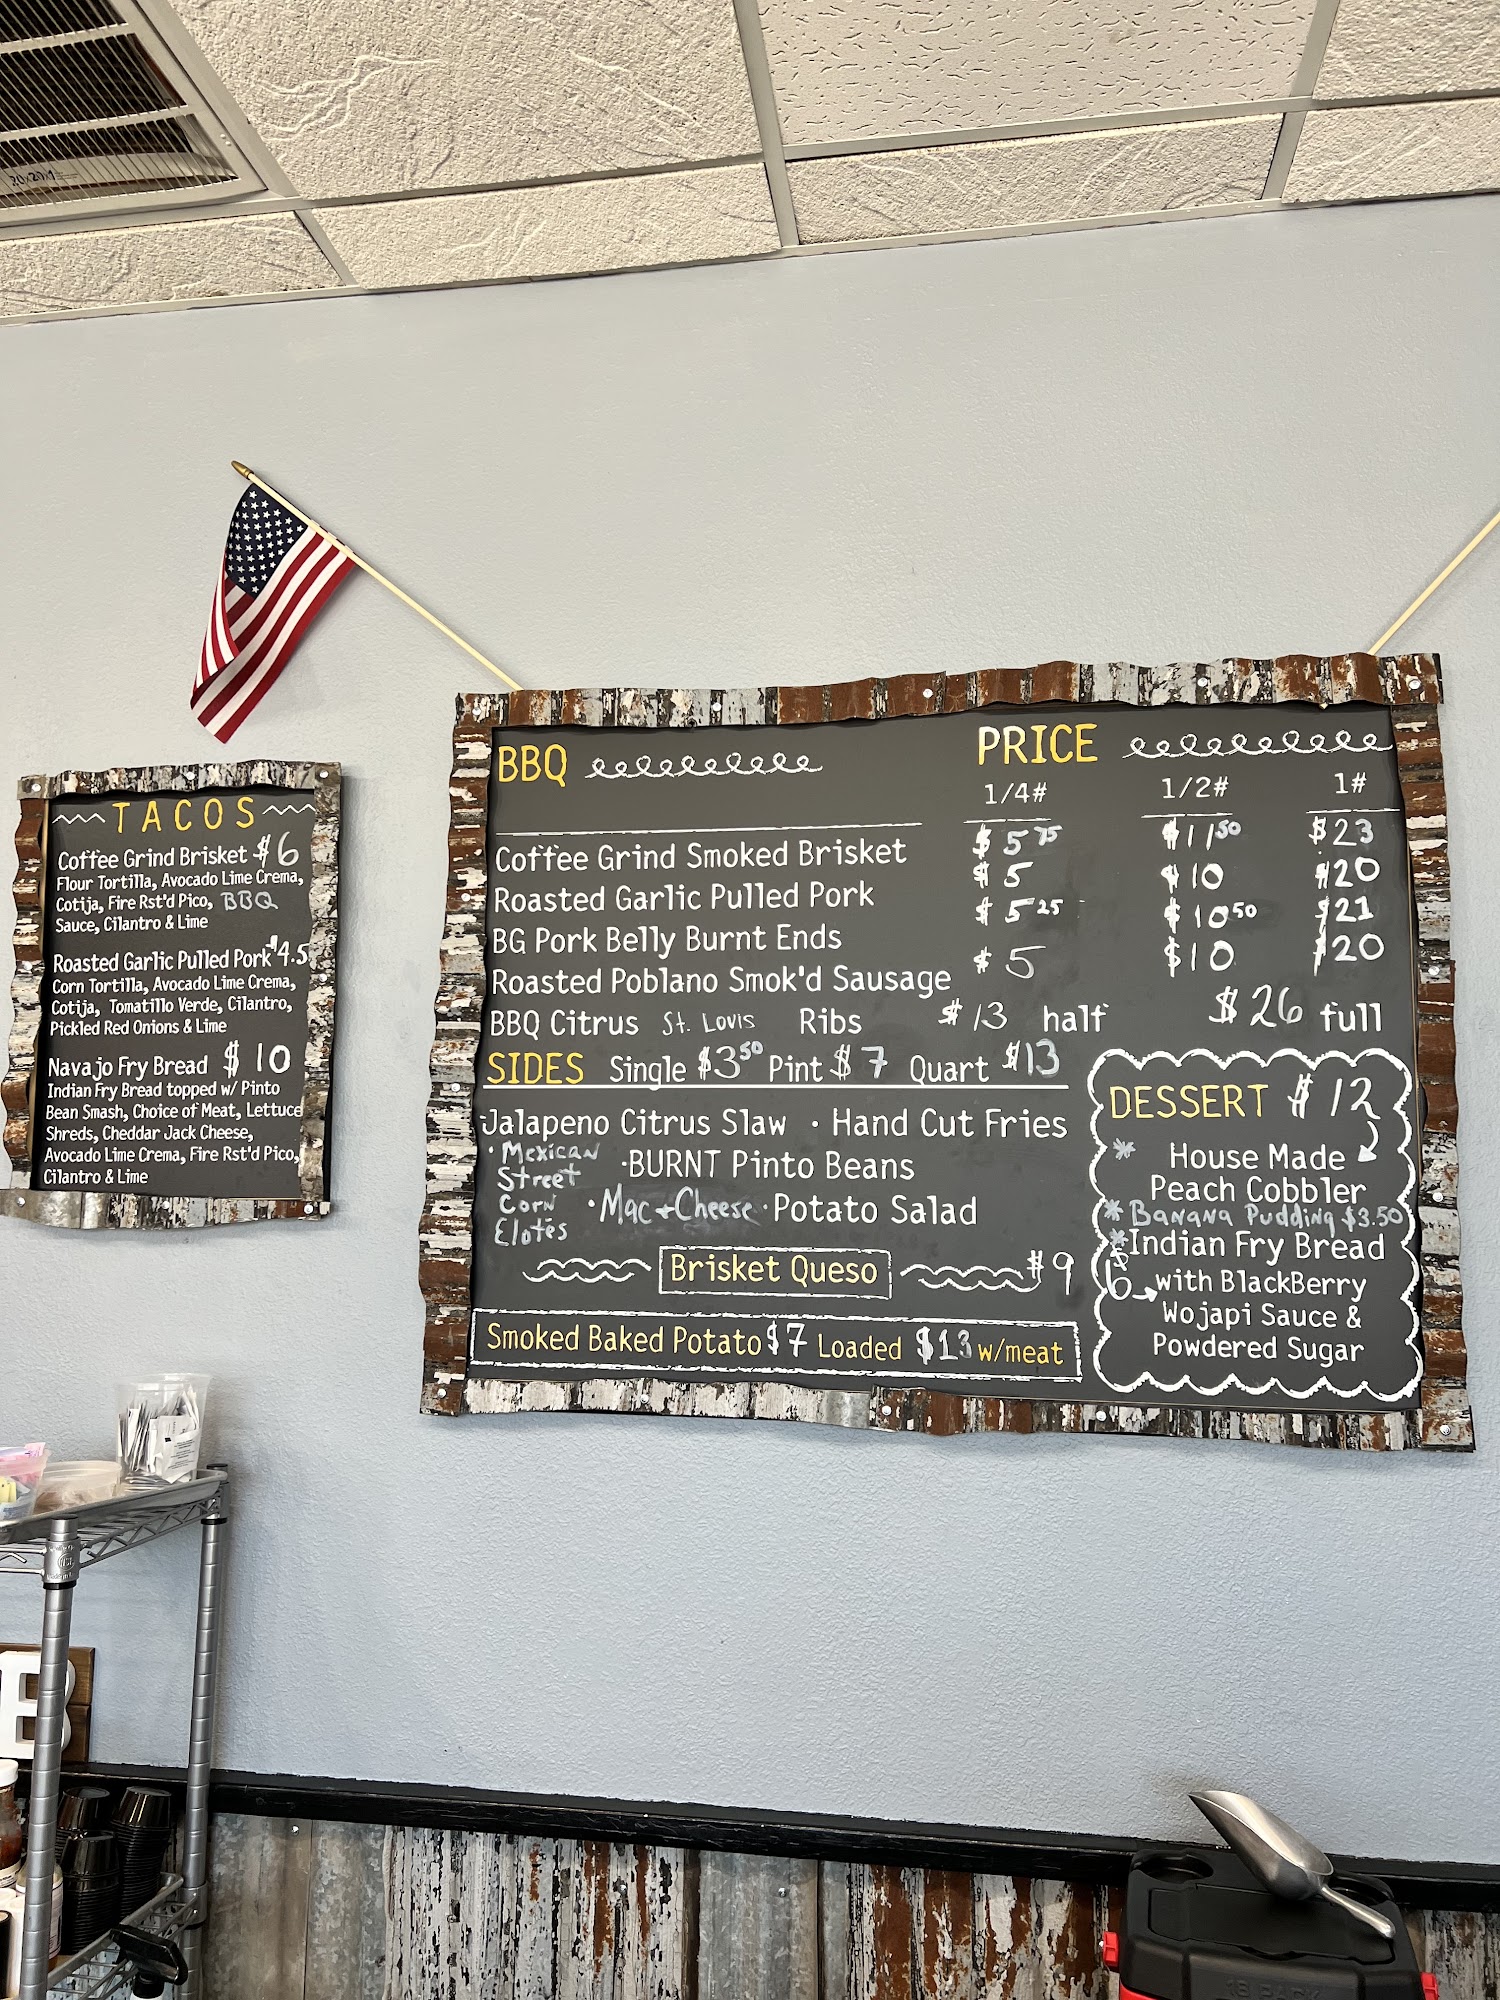 20x20x1
TACOS
Coffee Grind Brisket $6
Flour Tortilla, Avocado Lime Crema,
Cotija, Fire Rst'd Pico, BBQ
Sauce, Cilantro & Lime
Roasted Garlic Pulled Pork $4.5
Corn Tortilla, Avocado Lime Crema,
Cotija, Tomatillo Verde, Cilantro,
Pickled Red Onions & Lime
Navajo Fry Bread $10
Indian Fry Bread topped w/ Pinto
Bean Smash, Choice of Meat, Lettuce
Shreds, Cheddar Jack Cheese,
Avocado Lime Crema, Fire Rst'd Pico,
Cilantro & Lime
BBQ PRICE
1/4# 1/2# 1#
Coffee Grind Smoked Brisket $5 75 $11 50 $23
Roasted Garlic Pulled Pork $5 $10 $20
BG Pork Belly Burnt Ends $5 25 $10 50 $21
Roasted Poblano Smok'd Sausage $5 $10 $20
BBQ Citrus St. Lovis Ribs $13 half $26 full
SIDES Single $3 50 Pint $7 Quart $13
·Jalapeno Citrus Slaw · Hand Cut Fries
· Mexican Street Corn Elotes
·BURNT Pinto Beans
·Mac + Cheese ·Potato Salad
Brisket Queso $9
Smoked Baked Potato $7 Loaded $13 w/meat
DESSERT $12
* House Made
Peach Cobbler
* Banana Pudding $3.50
* Indian Fry Bread
$6 with BlackBerry
Wojapi Sauce &
Powdered Sugar
B